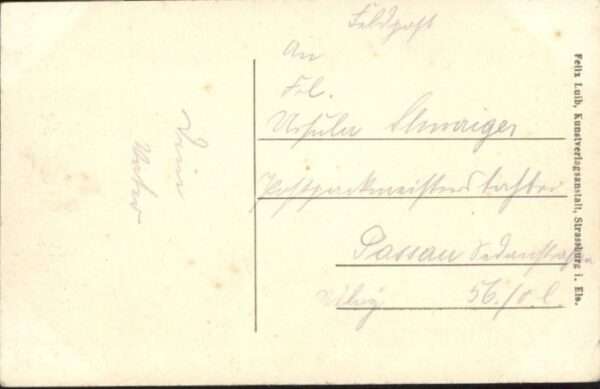 Feldpost
An
Frl.
Ursula Schwaiger
Postpackmeisterstochter
Passau
56/0 l.
Dein
Vater
Felix Luib, Kunstverlagsanstalt, Strassburg i. Els.